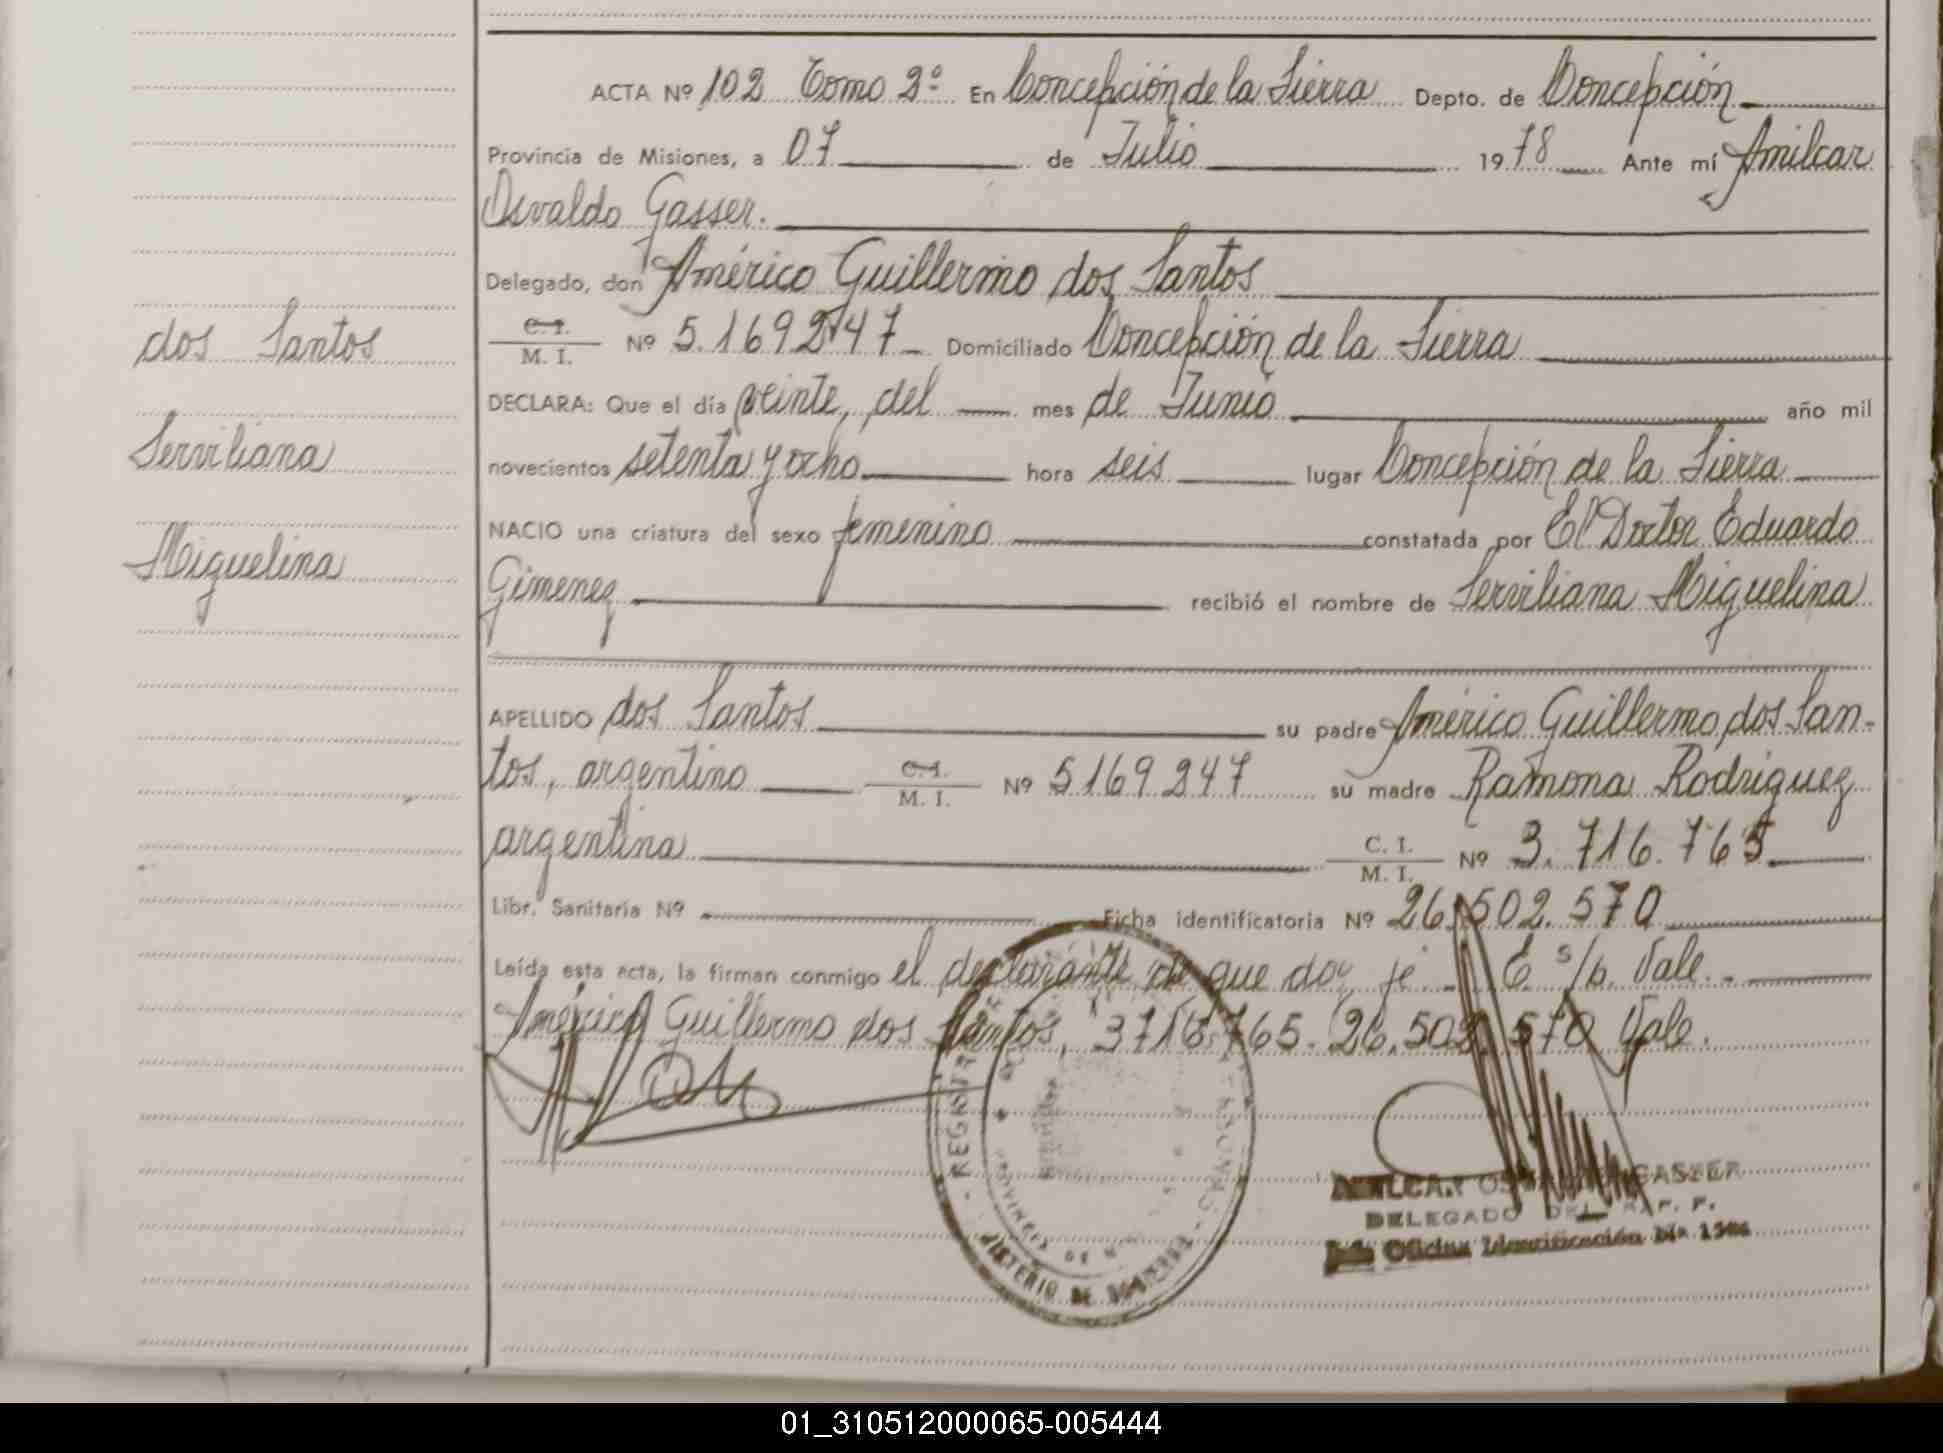 ACTA Nº 102 Tomo 2º En Concepción de la Sierra Depto. de Concepción
Provincia de Misiones, a 07 de Julio 1978 Ante mí Amilcar
Osvaldo Gasser.
Delegado, don Américo Guillermo dos Santos
C. I. / M. I. Nº 5.169247 Domiciliado Concepción de la Sierra
DECLARA: Que el día veinte, del mes de Junio año mil
novecientos setenta y ocho hora seis lugar Concepción de la Sierra
NACIO una criatura del sexo femenino constatada por El Doctor Eduardo
Gimenez recibió el nombre de Serviliana Miguelina
APELLIDO dos Santos su padre Américo Guillermo dos San-
tos, argentino C. I. / M. I. Nº 5169247 su madre Ramona Rodriguez
argentina C. I. / M. I. Nº 3.716.765
Libr. Sanitaria Nº Ficha identificatoria Nº 26.502.570
Leída esta acta, la firman conmigo el declarante de que doy fe. E s/b. Vale.
Américo Guillermo dos Santos, 3716.765. 26.502.570 Vale.
dos Santos
Serviliana
Miguelina
REGISTRO
PROVINCIA DE
MINISTERIO DE GOBIERNO
AMILCAR OSVALDO GASSER
DELEGADO DEL R. P. P.
Oficina Identificación Nº
01_310512000065-005444